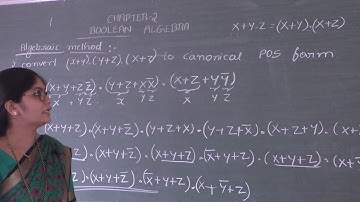 1
CHAPTER-2
BOOLEAN ALGEBRA
x+y·z = (x+y)·(x+z)
Algebraic method :-
convert (x+y)·(y+z)·(x+z) to canonical POS form
(x+y+zz̅)·(y+z+xx̅)·(x+z+yy̅)
x y z x y z
(x+y+z)·(x+y+z̅)·(y+z+x)·(y+z+x̅)·(x+z+y)·(x+
·(x+y+z̅)·(x+y+z)·(x̅+y+z)·(x+y+z)·(x+
·(x+y+z̅)·(x̅+y+z)·(x+y̅+z)